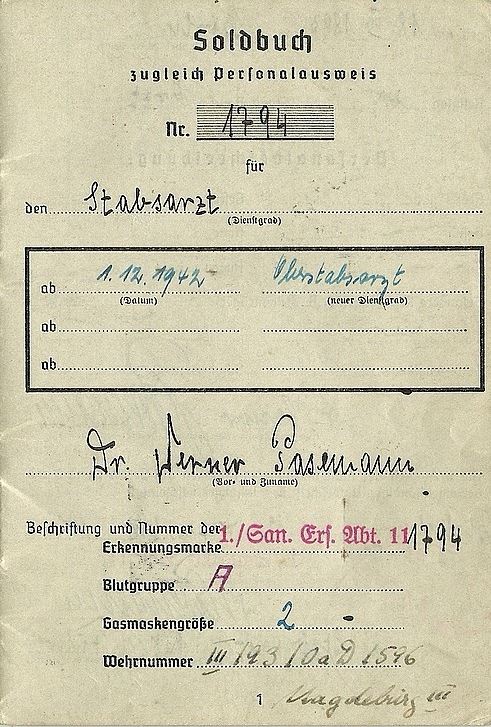 Soldbuch
zugleich Personalausweis
Nr. 1794
für
den Stabsarzt
(Dienstgrad)
ab 1.12.1942 Oberstabsarzt
(Datum) (neuer Dienstgrad)
ab
ab
Dr. Werner Pasemann
(Vor- und Zuname)
Beschriftung und Nummer der
Erkennungsmarke 1./San. Ers. Abt. 11 1794
Blutgruppe A
Gasmaskengröße 2
Wehrnummer III 193 / 0a D 1596
1 Magdeburg III